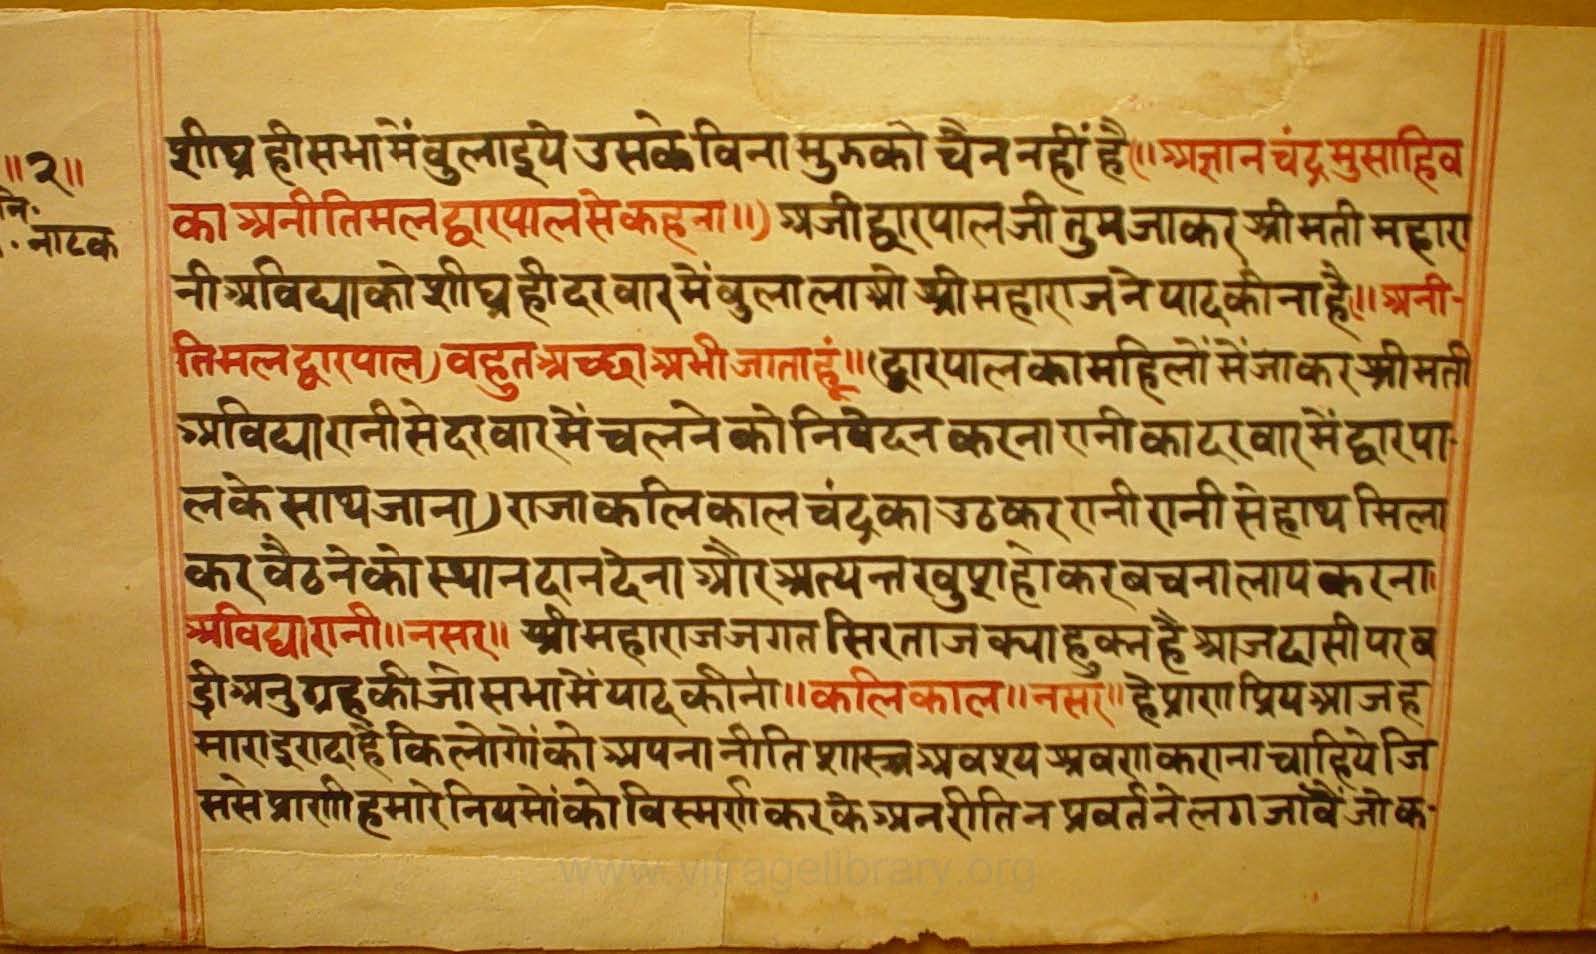 ॥२॥
नि.
. नाटक
शीघ्र ही सभा में वुलाइये उसके विना मुझको चैन नहीं है (॥ अज्ञान चंद्र मुसाहिव
का अनीतिमल द्वारपाल से कहना॥) अजी द्वारपाल जी तुम जाकर श्रीमती महारा
नी अविद्या को शीघ्र ही दरवार में वुला लाओ श्री महाराज ने याद कीना है (॥ अनी-
तिमल द्वारपाल) वहुत अच्छा अभी जाता हूं॥ (द्वारपाल का महिलों में जाकर श्रीमती
अविद्या रानी से दरवार में चलने को निवेदन करना रानी का दरवार में द्वारपा-
ल के साथ जाना) राजा कलिकाल चंद्र का उठकर रानी रानी से हाथ मिला
कर वैठने को स्थान दान देना और अत्यन्त खुश होकर बचनालाप करना।
अविद्या रानी॥ नसर॥ श्री महाराज जगत सिरताज क्या हुक्न है आज दासी पर व
ड़ी अनुग्रह की जो सभा में याद कीना॥ कलिकाल॥ नसर॥ हे प्राण प्रिय आज ह
मारा इरादा है कि लोगों को अपना नीति शास्त्र अवश्य श्रवण कराना चाहिये जि
ससे प्राणी हमारे नियमों को विस्मर्ण करके अनरीति न प्रवर्तने लग जांवैं जो क-
www.vitragelibrary.org